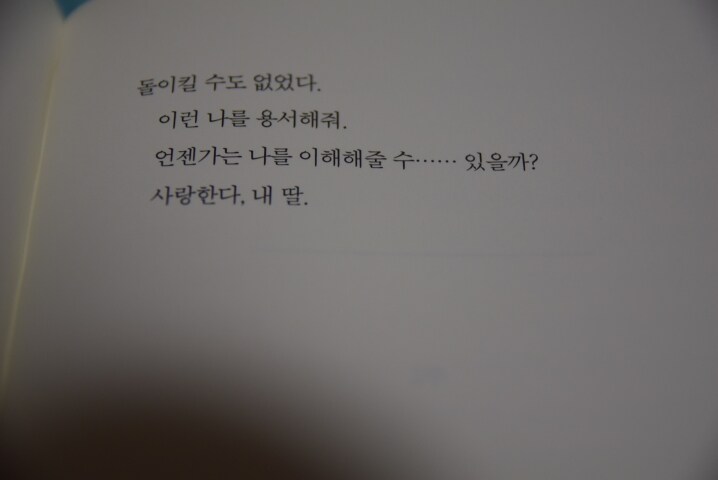 돌이킬 수도 없었다.
이런 나를 용서해줘.
언젠가는 나를 이해해줄 수…… 있을까?
사랑한다, 내 딸.